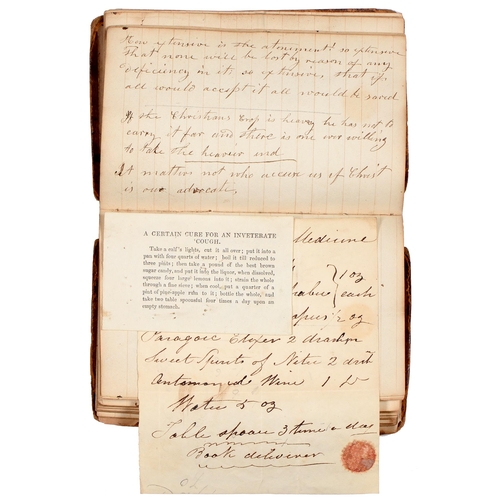 How extensive is the atonement so extensive
that none will be lost by reason of any
deficiency in it, so extensive, that if
all would accept it all would be saved
If the Christians Crop is heavy he has not to
carry it far and there is one ever willing
to take the heavier end
It matters not who accuse us if Christ
is our advocate
A CERTAIN CURE FOR AN INVETERATE
COUGH.
Take a calf's lights, cut it all over; put it into a
pan with four quarts of water; boil it till reduced to
three pints; then take a pound of the best brown
sugar candy, and put it into the liquor, when dissolved,
squeeze four large lemons into it; strain the whole
through a fine sieve; when cool, put a quarter of a
pint of pine-apple rum to it; bottle the whole, and
take two table spoonsful four times a day upon an
empty stomach.
Medicine
1 oz
each
½ oz
Paragoic Elixer 2 drachm
Sweet Spirits of Nitre 2 drch
Antemonade Wine 1 Do
Water 5 oz
Table spoon 3 time a day
Book deliverer